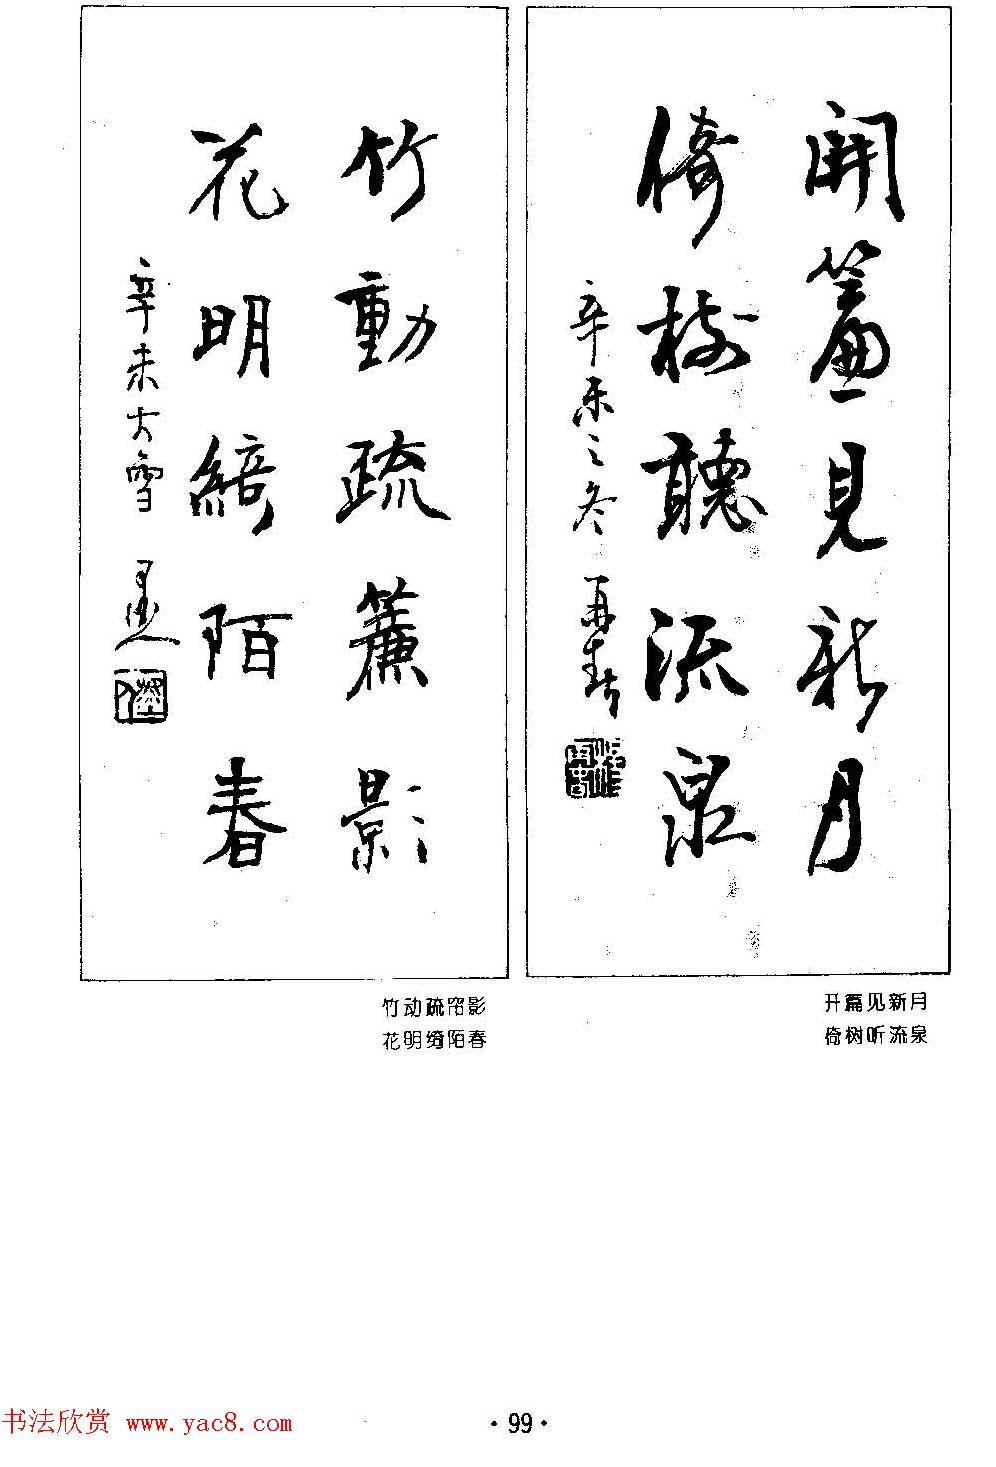 開篇見新月
倚樹聽流泉
辛未之冬
竹動疏簾影
花明綺陌春
辛未大雪
开篇见新月
倚树听流泉
竹动疏帘影
花明绮陌春
书法欣赏 www.yac8.com
·99·